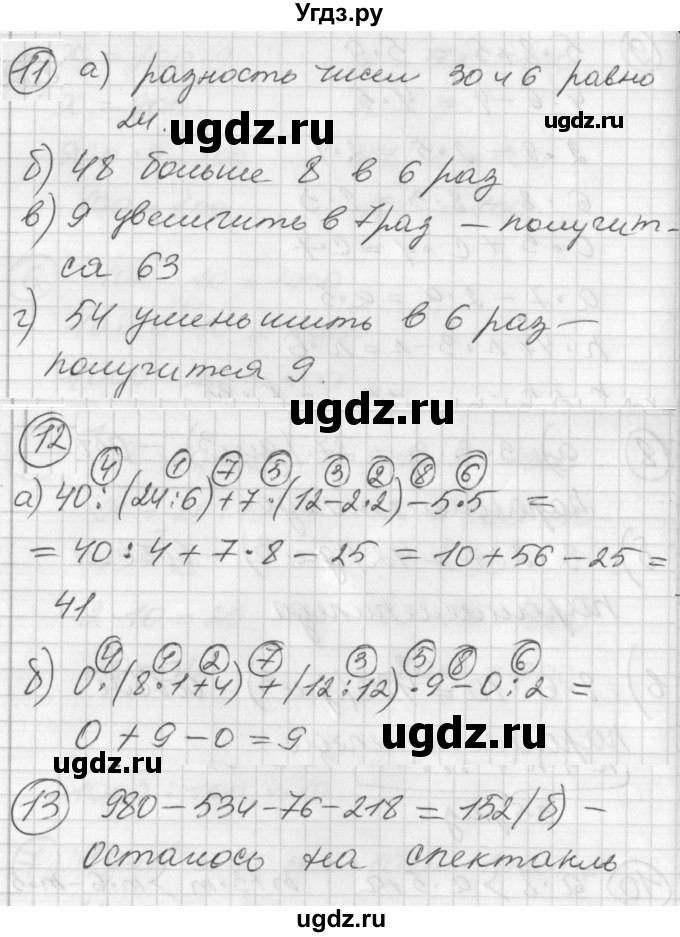 Угдз.ру
11 а) разность чисел 30 и 6 равно
24.
ugdz.ru ugdz.ru
б) 48 больше 8 в 6 раз
в) 9 увеличить в 7 раз – получит-
ся 63
г) 54 уменьшить в 6 раз –
получится 9.
ugdz.ru
12
4 1 7 5 3 2 8 6
а) 40:(24:6)+7·(12-2·2)-5·5 =
= 40:4+7·8-25 = 10+56-25 =
41
4 1 2 7 3 5 8 6
б) 0·(8·1+4)+(12:12)·9-0:2 =
0+9-0=9
ugdz.ru
ugdz.ru
13 980-534-76-218 = 152(б) -
осталось на спектакль
ugdz.ru